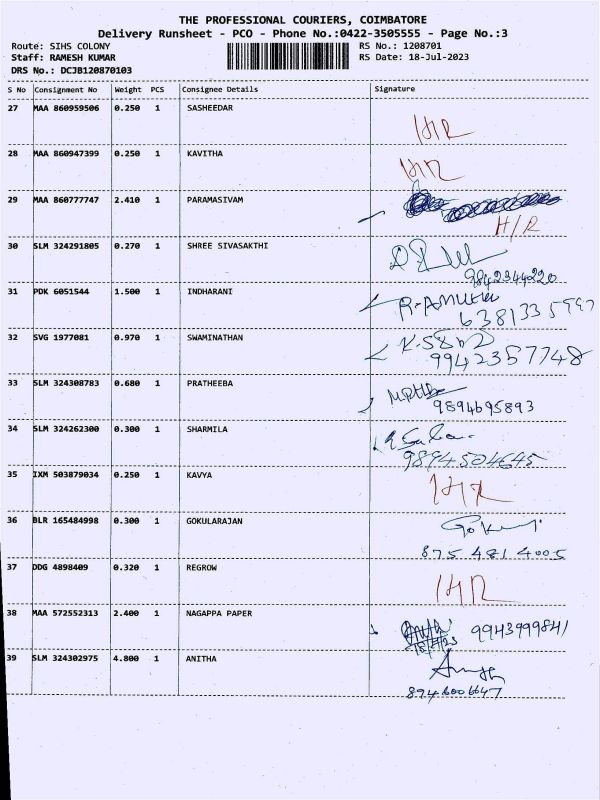 THE PROFESSIONAL COURIERS, COIMBATORE
Delivery Runsheet - PCO - Phone No.:0422-3505555 - Page No.:3
Route: SIHS COLONY RS No.: 1208701
Staff: RAMESH KUMAR RS Date: 18-Jul-2023
DRS No.: DCJB120870103
S No Consignment No Weight PCS Consignee Details Signature
27 MAA 860959506 0.250 1 SASHEEDAR
H/R
28 MAA 860947399 0.250 1 KAVITHA
H/R
29 MAA 860777747 2.410 1 PARAMASIVAM
H/R
30 SLM 324291805 0.270 1 SHREE SIVASAKTHI
9842344220
31 PDK 6051544 1.500 1 INDHARANI
6381335997
32 SVG 1977081 0.970 1 SWAMINATHAN
9942357748
33 SLM 324308783 0.680 1 PRATHEEBA
9894695893
34 SLM 324262300 0.300 1 SHARMILA
9894504645
35 IXM 503879034 0.250 1 KAVYA
H/R
36 BLR 165484998 0.300 1 GOKULARAJAN
875 481 4005
37 DDG 4898409 0.320 1 REGROW
H/R
38 MAA 572552313 2.400 1 NAGAPPA PAPER
9943999841
39 SLM 324302975 4.800 1 ANITHA
8946006647